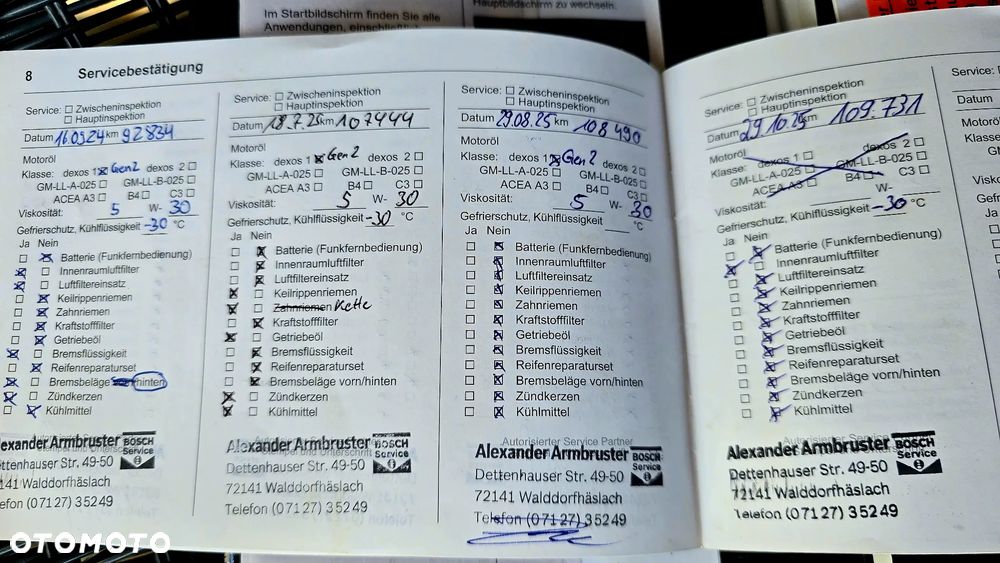 Im Startbildschirm finden Sie alle
Anwendungen, einschließlich
Hauptbildschirm zu wechseln.
8 Servicebestätigung
Service: ☐ Zwischeninspektion
☐ Hauptinspektion
Datum 16.0924 km 92834
Motoröl
Klasse: dexos 1 ☒ Gen2 dexos 2 ☐
GM-LL-A-025 ☐ GM-LL-B-025 ☐
ACEA A3 ☐ B4 ☐ C3 ☐
Viskosität: 5 W- 30
Gefrierschutz, Kühlflüssigkeit -30 °C
Ja Nein
☐ ☒ Batterie (Funkfernbedienung)
☒ ☐ Innenraumluftfilter
☒ ☐ Luftfiltereinsatz
☐ ☒ Keilrippenriemen
☐ ☒ Zahnriemen
☐ ☒ Kraftstofffilter
☐ ☒ Getriebeöl
☒ ☐ Bremsflüssigkeit
☐ ☒ Reifenreparaturset
☒ ☐ Bremsbeläge hinten
☒ ☐ Zündkerzen
☐ ☒ Kühlmittel
Alexander Armbruster BOSCH
Service
Dettenhauser Str. 49-50
72141 Walddorfhäslach
Telefon (07127) 35249
Service: ☐ Zwischeninspektion
☐ Hauptinspektion
Datum 18.7.25 km 107444
Motoröl
Klasse: dexos 1 ☒ Gen2 dexos 2 ☐
GM-LL-A-025 ☐ GM-LL-B-025 ☐
ACEA A3 ☐ B4 ☐ C3 ☐
Viskosität: 5 W- 30
Gefrierschutz, Kühlflüssigkeit -30 °C
Ja Nein
☐ ☒ Batterie (Funkfernbedienung)
☐ ☒ Innenraumluftfilter
☐ ☒ Luftfiltereinsatz
☒ ☐ Keilrippenriemen
☒ ☐ Zahnriemen Kette
☐ ☒ Kraftstofffilter
☒ ☐ Getriebeöl
☐ ☒ Bremsflüssigkeit
☐ ☒ Reifenreparaturset
☐ ☒ Bremsbeläge vorn/hinten
☒ ☐ Zündkerzen
☒ ☐ Kühlmittel
Alexander Armbruster BOSCH
Service
Dettenhauser Str. 49-50
72141 Walddorfhäslach
Telefon (07127) 35249
Service: ☐ Zwischeninspektion
☐ Hauptinspektion
Datum 29.08.25 km 108490
Motoröl
Klasse: dexos 1 ☒ Gen2 dexos 2 ☐
GM-LL-A-025 ☐ GM-LL-B-025 ☐
ACEA A3 ☐ B4 ☐ C3 ☐
Viskosität: 5 W- 30
Gefrierschutz, Kühlflüssigkeit °C
Ja Nein
☐ ☒ Batterie (Funkfernbedienung)
☐ ☒ Innenraumluftfilter
☐ ☒ Luftfiltereinsatz
☐ ☒ Keilrippenriemen
☐ ☒ Zahnriemen
☐ ☒ Kraftstofffilter
☐ ☒ Getriebeöl
☐ ☒ Bremsflüssigkeit
☐ ☒ Reifenreparaturset
☐ ☒ Bremsbeläge vorn/hinten
☐ ☒ Zündkerzen
☐ ☒ Kühlmittel
Autorisierter Service Partner
Alexander Armbruster BOSCH
Service
Dettenhauser Str. 49-50
72141 Walddorfhäslach
Telefon (07127) 35249
Service: ☐ Zwischeninspektion
☐ Hauptinspektion
Datum 29.10.25 km 109.731
Motoröl
Klasse: dexos 1 ☐ dexos 2 ☐
GM-LL-A-025 ☐ GM-LL-B-025 ☐
ACEA A3 ☐ B4 ☐ C3 ☐
Viskosität: W-
Gefrierschutz, Kühlflüssigkeit -30 °C
Ja Nein
☐ ☒ Batterie (Funkfernbedienung)
☒ ☐ Innenraumluftfilter
☐ ☒ Luftfiltereinsatz
☐ ☒ Keilrippenriemen
☐ ☒ Zahnriemen
☐ ☒ Kraftstofffilter
☐ ☒ Getriebeöl
☐ ☒ Bremsflüssigkeit
☐ ☒ Reifenreparaturset
☐ ☒ Bremsbeläge vorn/hinten
☐ ☒ Zündkerzen
☐ ☒ Kühlmittel
Autorisierter Service
Alexander Armbruster BOSCH
Service
Dettenhauser Str. 49-50
72141 Walddorfhäslach
Telefon (07127) 35249
Service: ☐
Datum
Motoröl
Klasse:
Viskosität:
Gefrierschutz
Ja Nein
OTOMOTO